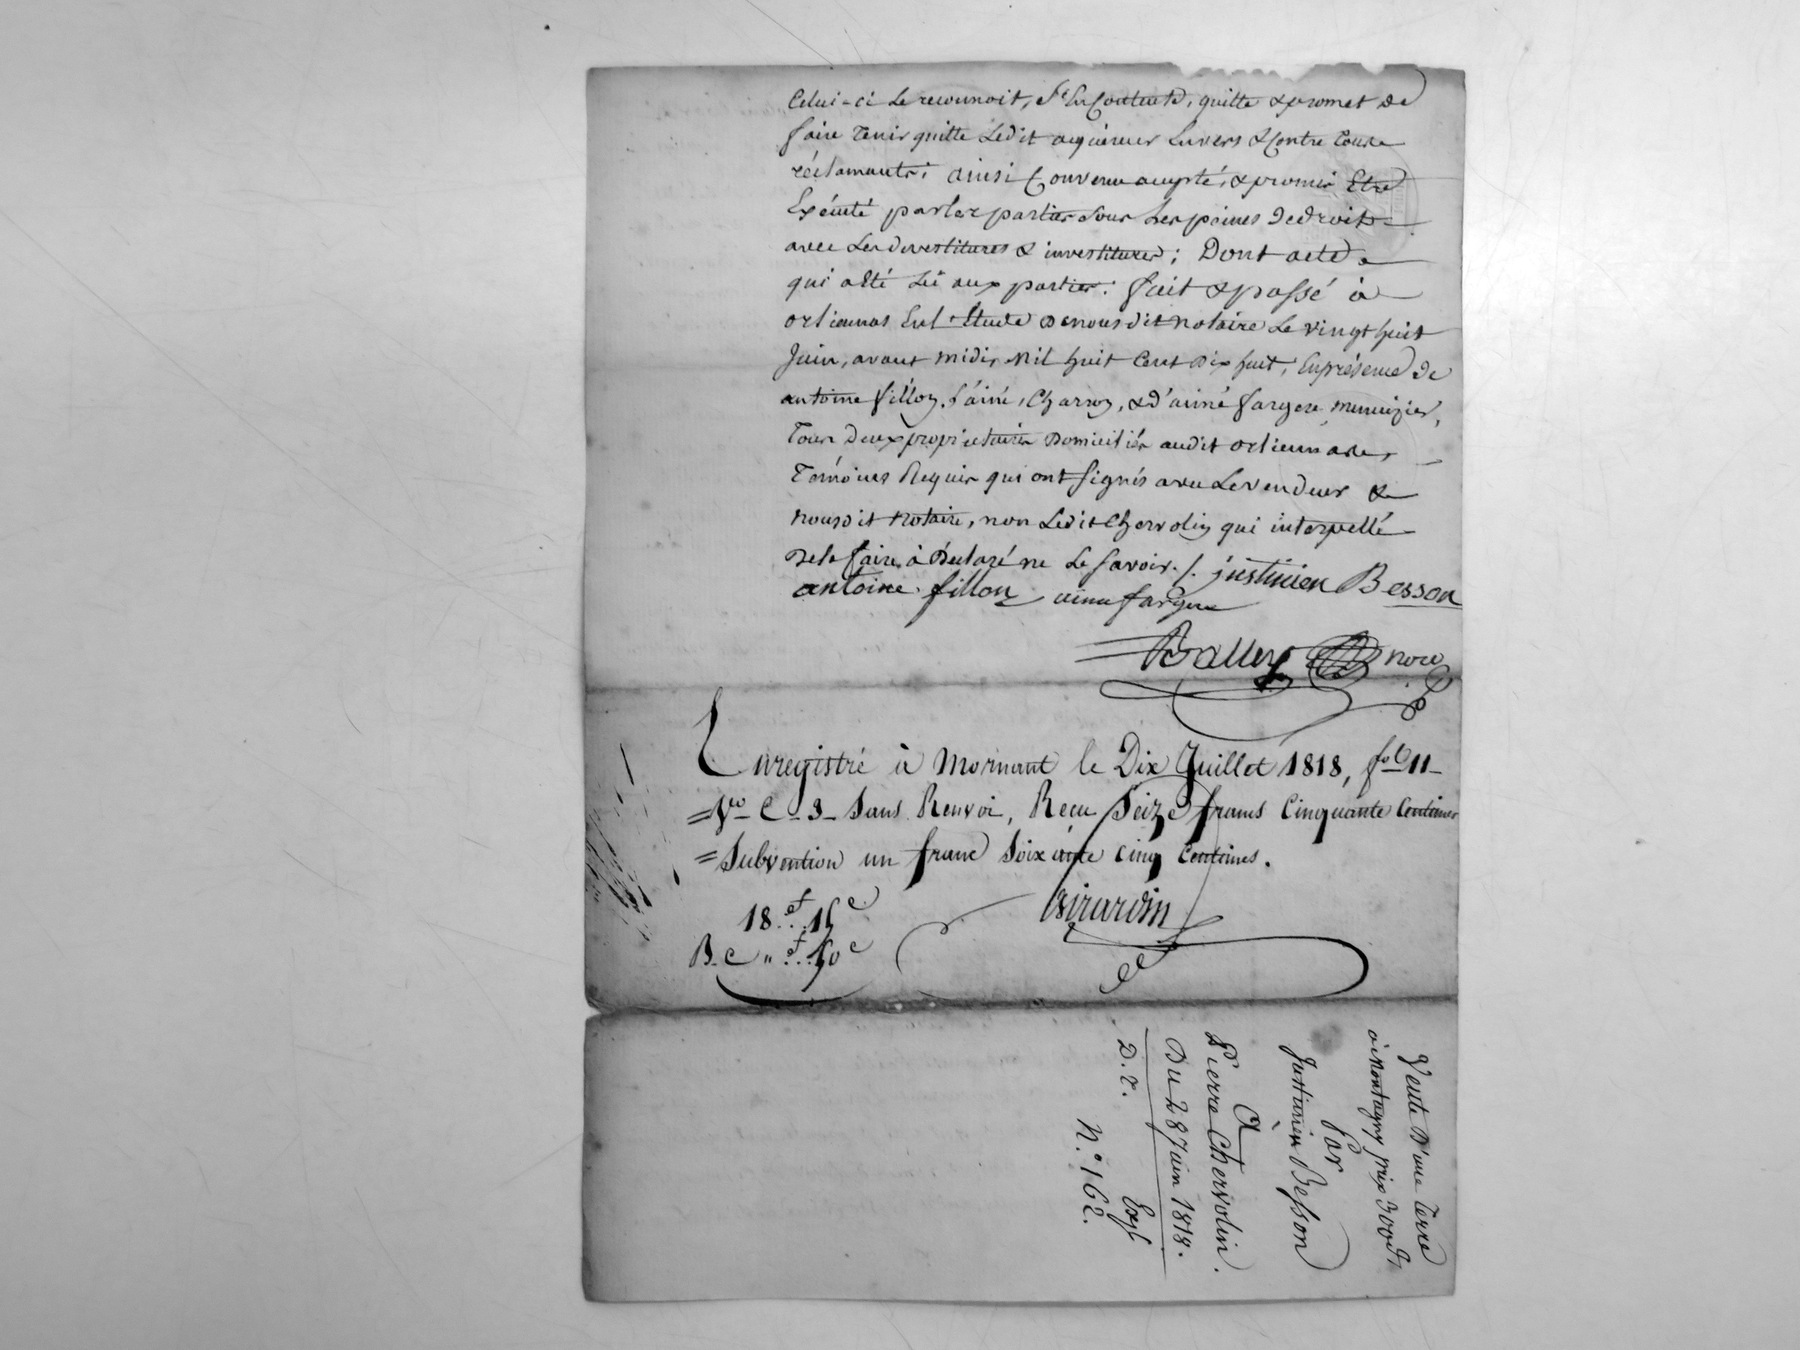 Celui-ci le reconnoit, S'en Contente, quitte & promet de
faire tenir quitte Ledit acquéreur Envers & Contre tous
réclamants; ainsi Convenu accepté, & promis Etre
Exécuté par les parties sous les peines de droit
avec Les devestitures & investitures; Dont acte
qui a été Lu aux parties. fait & passé à
orlienas En l'Etude de nous dit notaire Le vingt huit
Juin, avant midi, Mil huit Cent dix huit; En présence de
antoine fillon, L'ainé, Charron, & d'aimé fargere menuizier,
tous deux propriétaires Domiciliés audit orlienas,
témoins Requis qui ont Signés avec Le vendeur &
nousdit notaire, non Ledit Chervolin qui interpellé
de le faire à Déclaré ne Le Savoir. /. justinien Besson
antoine fillon aimé fargere
Balley nore
Enregistré à Mornant le Dix Juillet 1818, fo 11
Vo C. 3 Sans Renvoi, Reçu Seize francs Cinquante Centimes
Subvention un franc Soixante cinq Centimes.
18 f. 15 c
Girardin
B. C " f. 50 c
Vente D'une terre
à Montagny prix 300 f
Par
Justinien Besson
A
Pierre Chervolin.
Du 28 Juin 1818.
D. T. Exp
N.° 162.